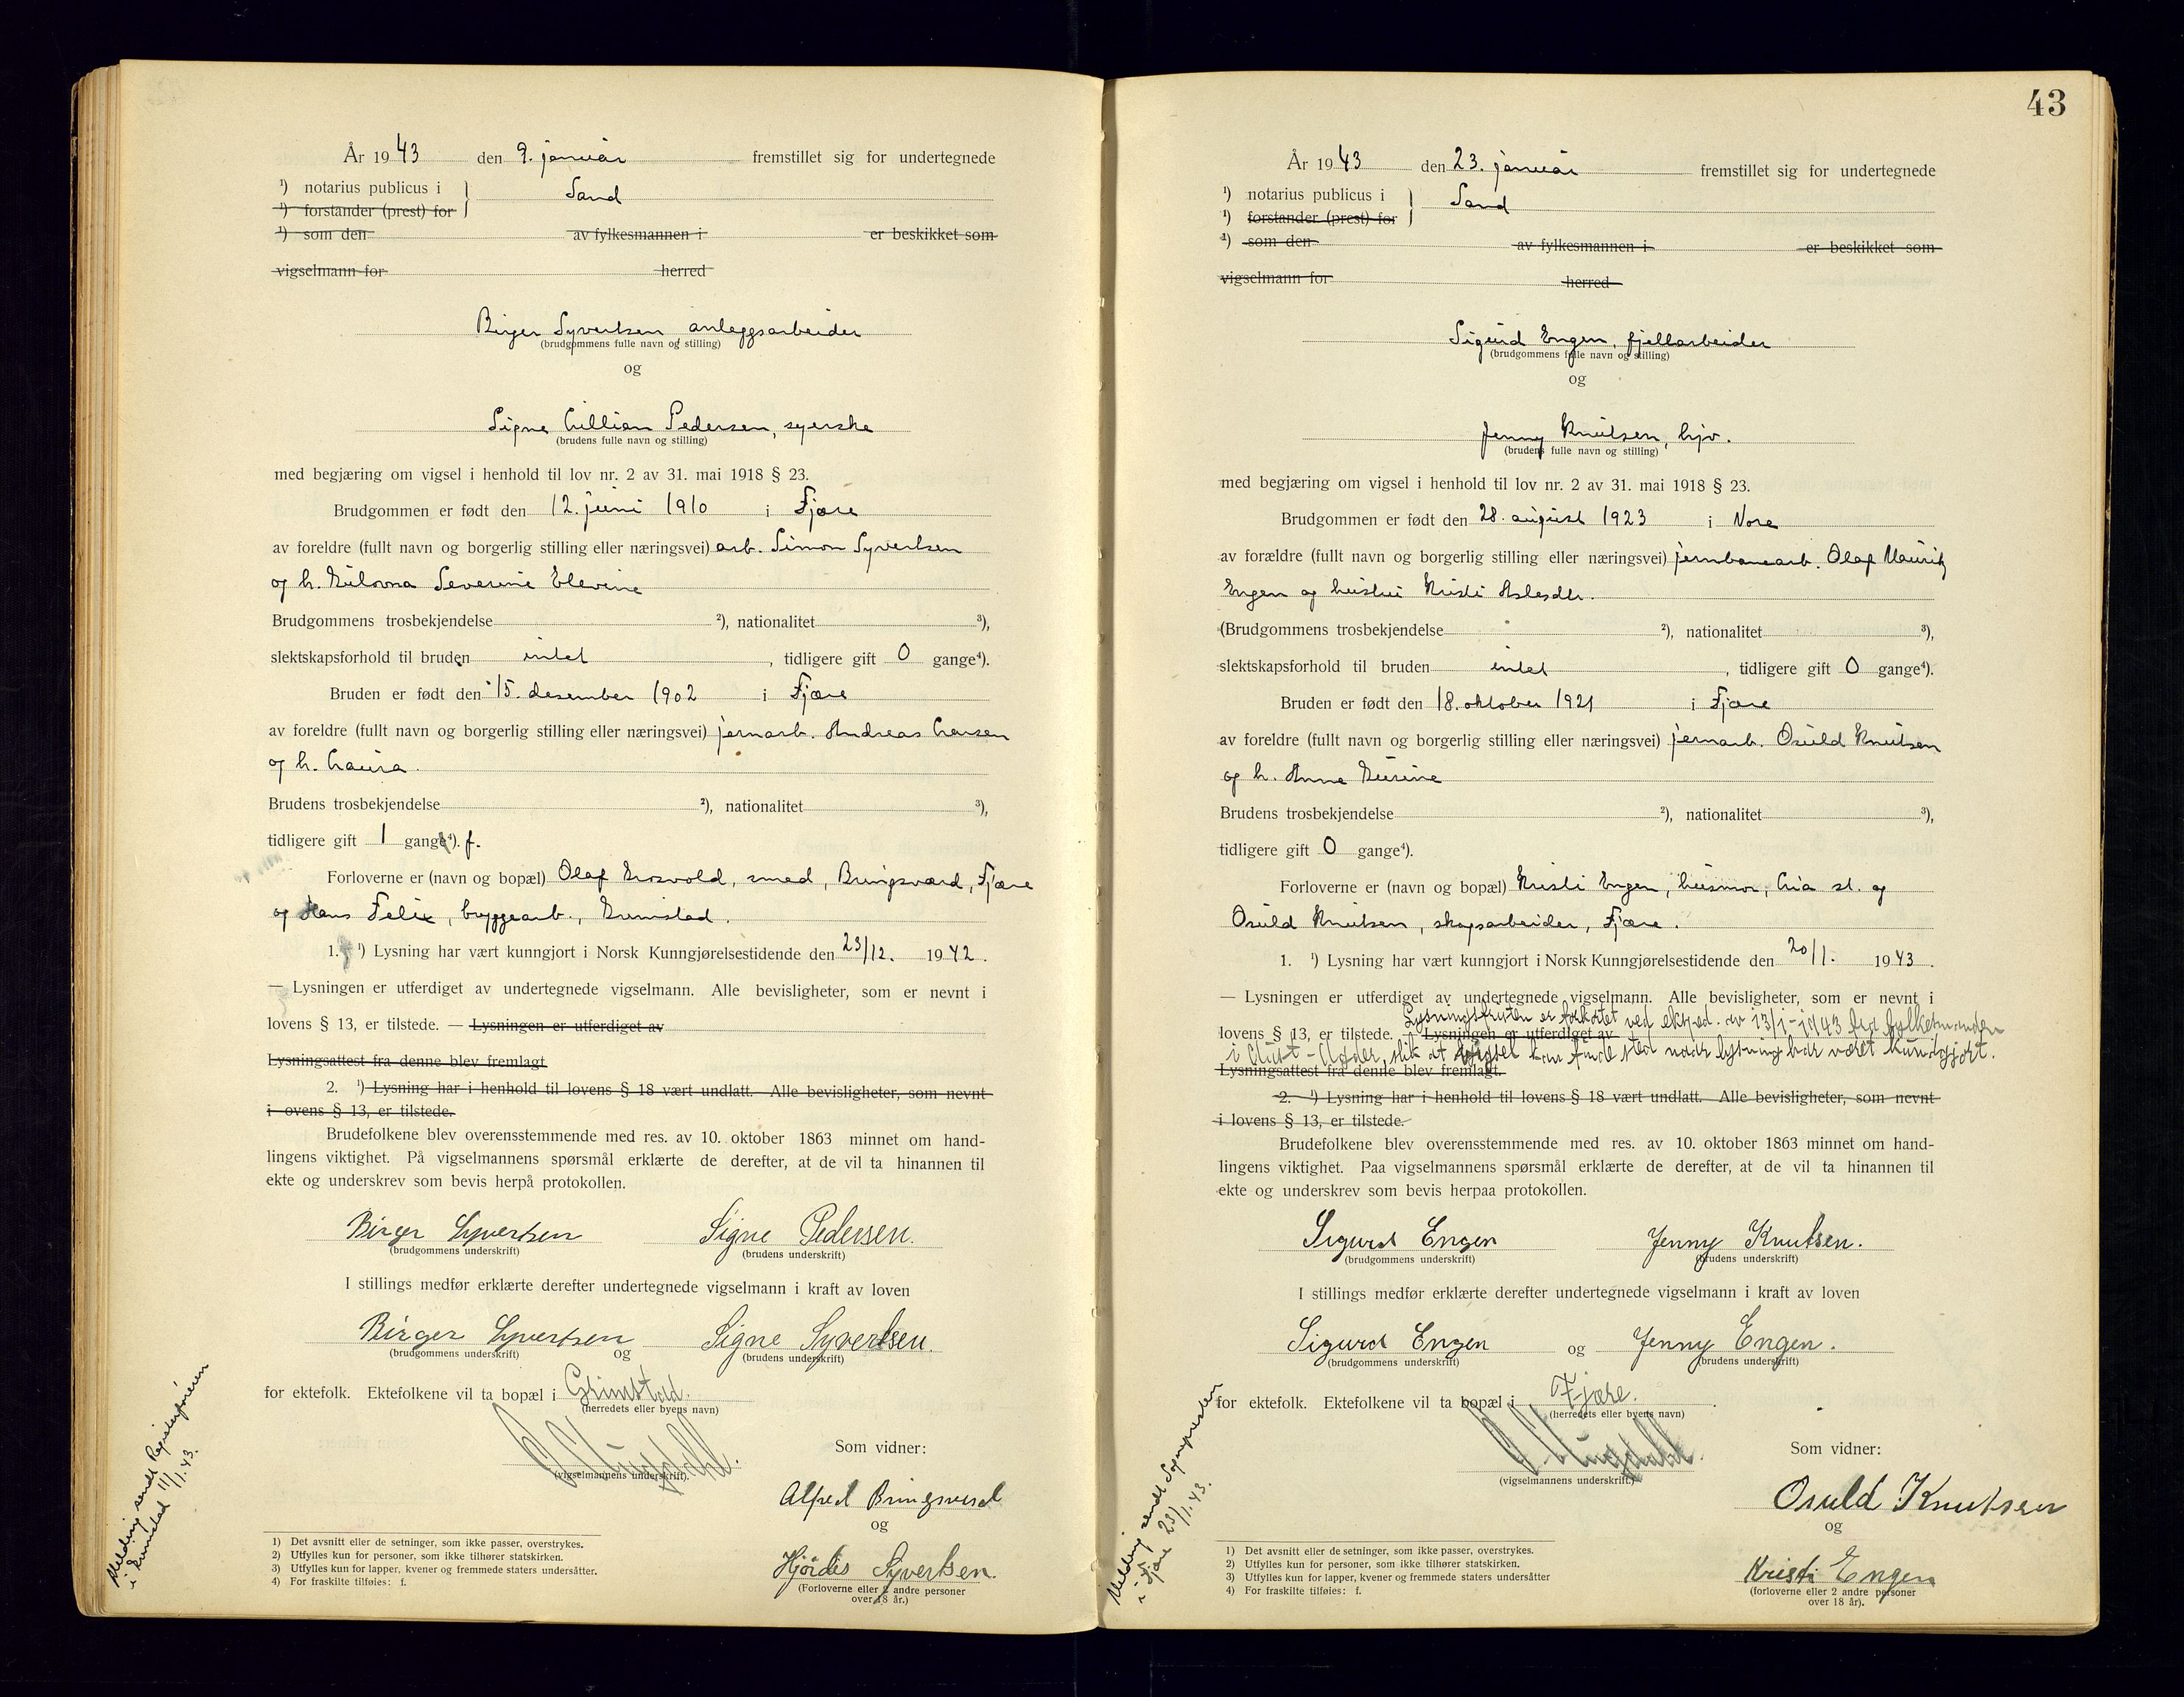 År 1943 den 9. januar fremstillet sig for undertegnede
¹) notarius publicus i } Sand
¹) forstander (prest) for
¹) som den av fylkesmannen i er beskikket som
vigselmann for herred
Birger Syvertsen anleggsarbeider
(brudgommens fulle navn og stilling)
og
Signe Lillian Pedersen, syerske
(brudens fulle navn og stilling)
med begjæring om vigsel i henhold til lov nr. 2 av 31. mai 1918 § 23.
Brudgommen er født den 12. juni 1910 i Fjære
av foreldre (fullt navn og borgerlig stilling eller næringsvei) arb. Simon Syvertsen
og h. Gulovna Severine Elevine
Brudgommens trosbekjendelse ²), nationalitet ³),
slektskapsforhold til bruden intet, tidligere gift 0 gange⁴).
Bruden er født den 15. desember 1902 i Fjære
av foreldre (fullt navn og borgerlig stilling eller næringsvei) jernarb. Andreas Larsen
og h. Laura.
Brudens trosbekjendelse ²), nationalitet ³),
tidligere gift 1 gang⁴). f.
Forloverne er (navn og bopæl) Olaf Grosvold, smed, Bringsværd, Fjære
og Hans Felix, bryggearb., Grimstad.
1. ¹) Lysning har vært kunngjort i Norsk Kunngjørelsestidende den 23/12. 1942.
— Lysningen er utferdiget av undertegnede vigselmann. Alle bevisligheter, som er nevnt i
lovens § 13, er tilstede. — Lysningen er utferdiget av
Lysningsattest fra denne blev fremlagt
2. ¹) Lysning har i henhold til lovens § 18 vært undlatt. Alle bevisligheter, som nevnt
i ovens § 13, er tilstede.
Brudefolkene blev overensstemmende med res. av 10. oktober 1863 minnet om hand-
lingens viktighet. På vigselmannens spørsmål erklærte de derefter, at de vil ta hinannen til
ekte og underskrev som bevis herpå protokollen.
Birger Syvertsen Signe Pedersen.
(brudgommens underskrift) (brudens underskrift)
I stillings medfør erklærte derefter undertegnede vigselmann i kraft av loven
Birger Syvertsen og Signe Syvertsen.
(brudgommens underskrift) (brudens underskrift)
for ektefolk. Ektefolkene vil ta bopæl i Grimstad.
(herredets eller byens navn)
(vigselmannens underskrift).
Som vidner:
Alfred Bringsverd
og
Hjördis Syvertsen.
(Forloverne eller 2 andre personer
over 18 år.)
Melding sendt Registerføreren
i Grimstad 11/1.43.
1) Det avsnitt eller de setninger, som ikke passer, overstrykes.
2) Utfylles kun for personer, som ikke tilhører statskirken.
3) Utfylles kun for lapper, kvener og fremmede staters undersåtter.
4) For fraskilte tilføies: f.
43
År 1943 den 23. januar fremstillet sig for undertegnede
¹) notarius publicus i } Sand
¹) forstander (prest) for
¹) som den av fylkesmannen i er beskikket som
vigselmann for herred
Sigurd Engen, fjellarbeider
(brudgommens fulle navn og stilling)
og
Jenny Knutsen, hjv.
(brudens fulle navn og stilling)
med begjæring om vigsel i henhold til lov nr. 2 av 31. mai 1918 § 23.
Brudgommen er født den 28. august 1923 i Nore
av forældre (fullt navn og borgerlig stilling eller næringsvei) jernbanearb. Olaf Mauritz
Engen og hustru Kristi Aslesdtr.
(Brudgommens trosbekjendelse ²), nationalitet ³),
slektskapsforhold til bruden intet, tidligere gift 0 gange⁴).
Bruden er født den 18. oktober 1921 i Fjære
av foreldre (fullt navn og borgerlig stilling eller næringsvei) jernarb. Osuld Knutsen
og h. Anne Gurine
Brudens trosbekjendelse ²), nationalitet ³),
tidligere gift 0 gange⁴).
Forloverne er (navn og bopæl) Kristi Engen, husmor, Lia st. og
Osuld Knutsen, skogsarbeider, Fjære.
1. ¹) Lysning har vært kunngjort i Norsk Kunngjørelsestidende den 20/1. 1943.
— Lysningen er utferdiget av undertegnede vigselmann. Alle bevisligheter, som er nevnt i
Lysningsfristen er forkortet ved eksped. av 13/1-1943 fra fylkesmannen
lovens § 13, er tilstede. — Lysningen er utferdiget av
i Aust-Agder, slik at vigsel kan finde sted naar lysning har været kundgjort.
Lysningsattest fra denne blev fremlagt.
2. ¹) Lysning har i henhold til lovens § 18 vært undlatt. Alle bevisligheter, som nevnt
i lovens § 13, er tilstede.
Brudefolkene blev overensstemmende med res. av 10. oktober 1863 minnet om hand-
lingens viktighet. Paa vigselmannens spørsmål erklærte de derefter, at de vil ta hinannen til
ekte og underskrev som bevis herpaa protokollen.
Sigurd Engen Jenny Knutsen.
(brudgommens underskrift) (brudens underskrift)
I stillings medfør erklærte derefter undertegnede vigselmann i kraft av loven
Sigurd Engen og Jenny Engen.
(brudgommens underskrift) (brudens underskrift)
for ektefolk. Ektefolkene vil ta bopæl i Fjære.
(herredets eller byens navn)
(vigselmannens underskrift.)
Som vidner:
Osuld Knutsen
og
Kristi Engen
(forloverne eller 2 andre personer
over 18 år).
Melding sendt Sognepresten
i Fjære 23/1.43.
1) Det avsnitt eller de setninger, som ikke passer, overstrykes.
2) Utfylles kun for personer, som ikke tilhører statskirken.
3) Utfylles kun for lapper, kvener og fremmede staters undersåtter
4) For fraskilte tilføies: f.